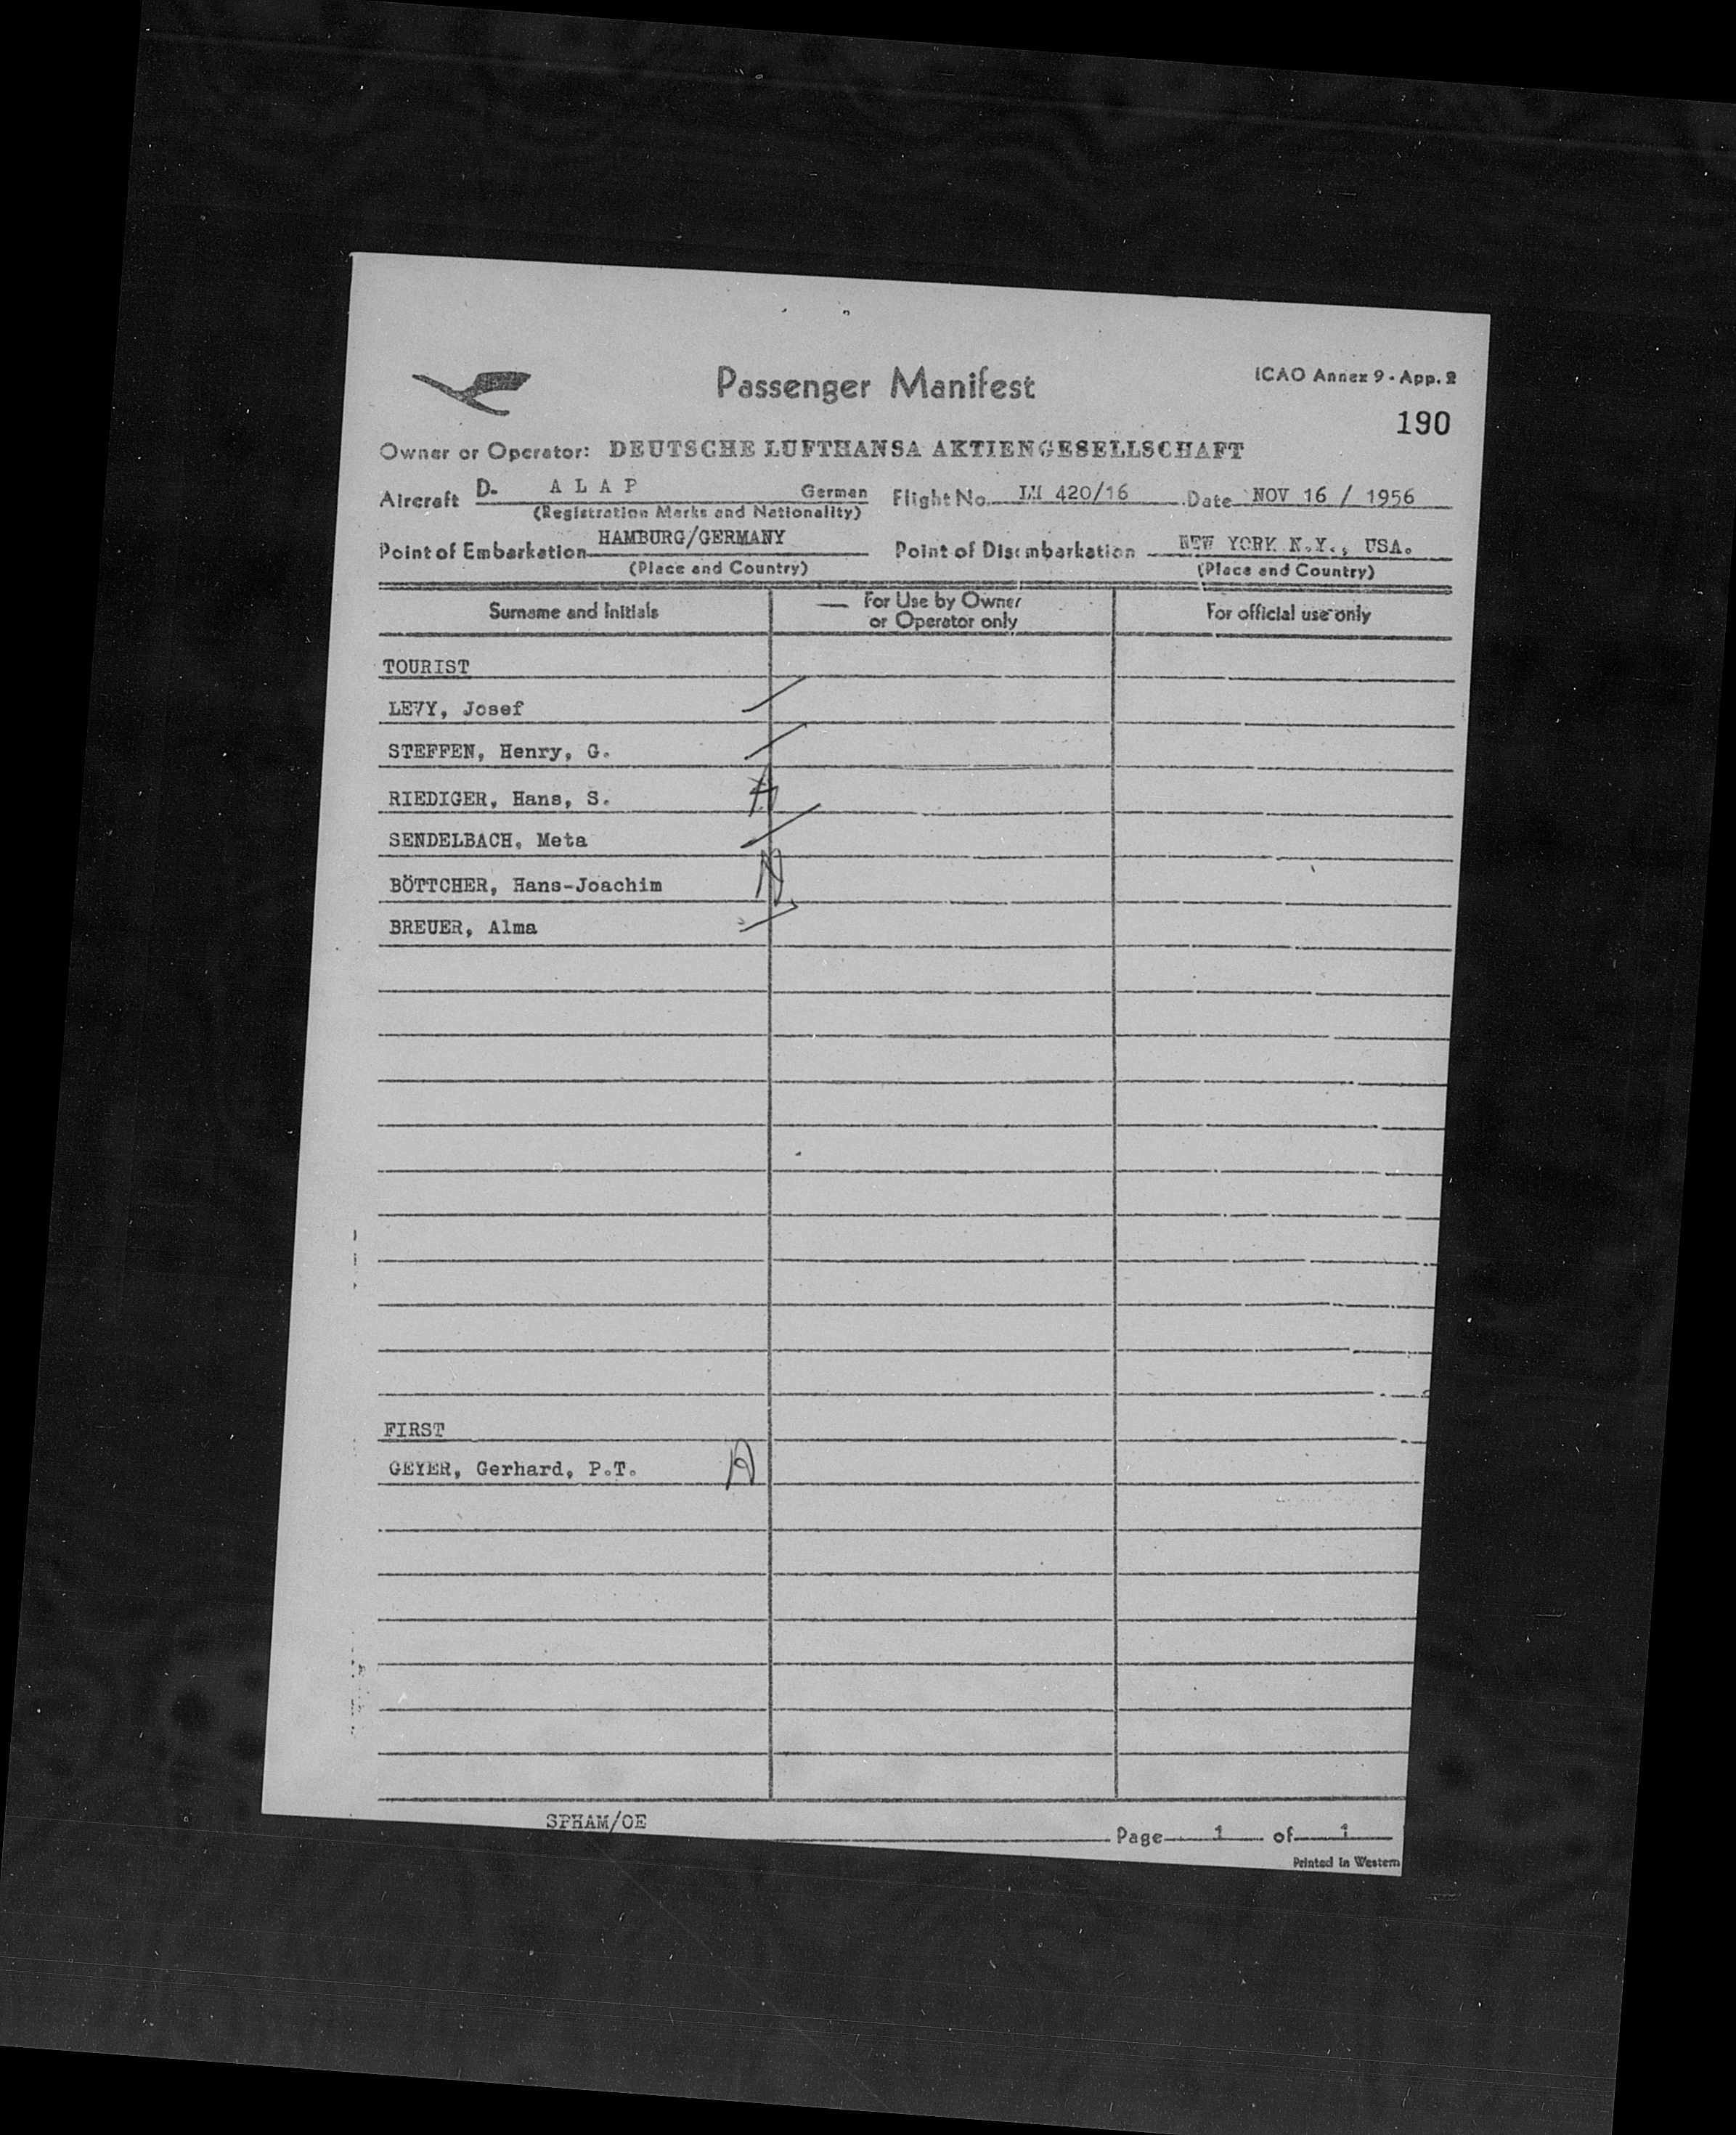 Passenger Manifest
ICAO Annex 9 - App. 2
190
Owner or Operator: DEUTSCHE LUFTHANSA AKTIENGESELLSCHAFT
Aircraft D- A L A P German Flight No. LH 420/16 Date NOV 16 / 1956
(Registration Marks and Nationality)
Point of Embarkation HAMBURG/GERMANY Point of Disembarkation NEW YORK N.Y., USA.
(Place and Country) (Place and Country)
Surname and Initials For Use by Owner or Operator only For official use only
TOURIST
LEVY, Josef
STEFFEN, Henry, G.
RIEDIGER, Hans, S. A
SENDELBACH, Meta
BÖTTCHER, Hans-Joachim
BREUER, Alma
FIRST
GEYER, Gerhard, P.T. A
SPHAM/OE
Page 1 of 1
Printed in Western